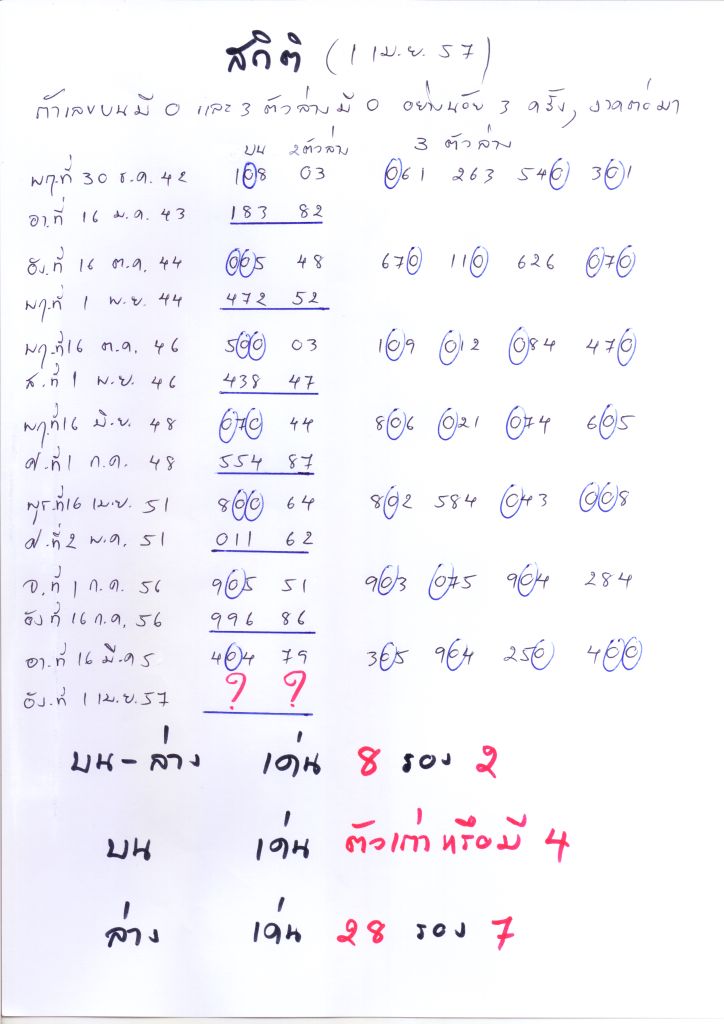 สถิติ (1 เม.ย. 57)
ถ้าเลขบนมี 0 และ 3 ตัวล่างมี 0 อย่างน้อย 3 ครั้ง, งวดต่อมา
บน 2ตัวล่าง 3 ตัวล่าง
พฤ.ที่ 30 ธ.ค. 42 108 03 061 263 540 301
อา.ที่ 16 ม.ค. 43 183 82
อัง.ที่ 16 ต.ค. 44 005 48 670 110 626 070
พฤ.ที่ 1 พ.ย. 44 472 52
พฤ.ที่16 ต.ค. 46 500 03 109 012 084 470
ส.ที่ 1 พ.ย. 46 438 47
พฤ.ที่16 มิ.ย. 48 070 44 806 021 074 605
ศ.ที่1 ก.ค. 48 554 87
พุธ.ที่16 เม.ย. 51 800 64 802 584 043 008
ศ.ที่2 พ.ค. 51 011 62
จ.ที่ 1 ก.ค. 56 905 51 903 075 904 284
อังที่ 16 ก.ค. 56 996 86
อา.ที่ 16 มี.ค 5 404 79 305 904 250 400
อัง.ที่ 1 เม.ย. 57 ? ?
บน-ล่าง เด่น 8 รอง 2
บน เด่น ตัวเก่าหรือมี 4
ล่าง เด่น 28 รอง 7